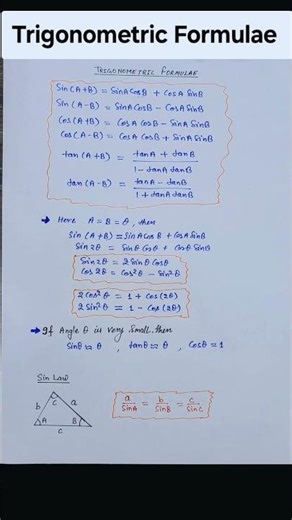 Trigonometric Formulae
TRIGONOMETRIC FORMULAE
Sin (A+B) = SinA CosB + CosA SinB
Sin (A-B) = SinA CosB - CosA SinB
Cos (A+B) = CosA CosB - SinA SinB
Cos (A-B) = CosA CosB + SinA SinB
tan (A+B) = tanA + tanB / 1 - tanA tanB
tan (A-B) = tanA - tanB / 1 + tanA tanB
→ Here A = B = θ, then
Sin (A+B) = SinA CosB + CosA SinB
Sin 2θ = Sinθ Cosθ + Cosθ Sinθ
Sin 2θ = 2 Sinθ Cosθ
Cos 2θ = Cos²θ - Sin²θ
2 Cos²θ = 1 + Cos (2θ)
2 Sin²θ = 1 - Cos (2θ)
→ If Angle θ is very small. then
Sinθ ≈ θ , tanθ ≈ θ , Cosθ = 1
Sin Law
C
b a
A B
c
a/SinA = b/SinB = c/SinC